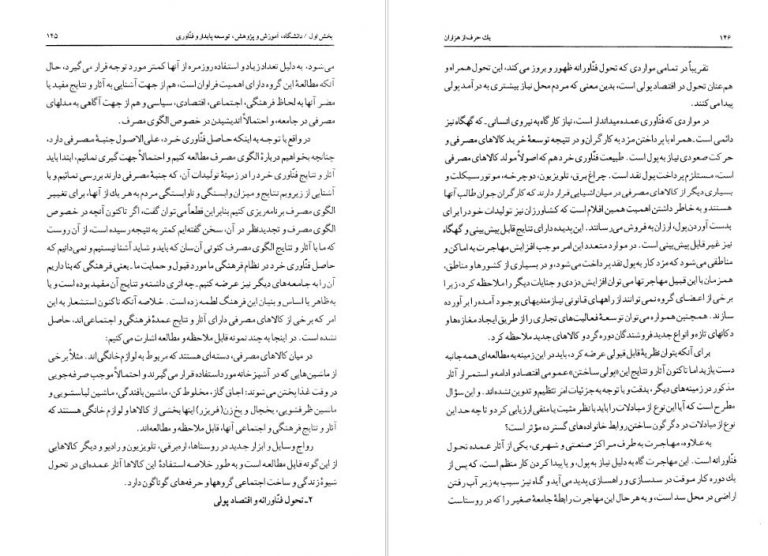 بخش اول / دانشگاه، آموزش و پژوهش، توسعه پایدار و فنّاوری ۱۴۵
می‌شود، به دلیل تعداد زیاد و استفاده روزمره از آنها کمتر مورد توجه قرار می‌گیرد، حال
آنکه مطالعۀ این گروه دارای اهمیت فراوان است، هم از جهت آشنایی به آثار و نتایج مفید یا
مضر آنها به لحاظ فرهنگی، اجتماعی، اقتصادی، سیاسی و هم از جهت آگاهی به مدلهای
مصرفی در جامعه، و احتمالاً اندیشیدن در خصوص الگوی مصرف.
در واقع با توجه به اینکه حاصل فنّاوری خرد، علی‌الاصول جنبۀ مصرفی دارد،
چنانچه بخواهیم دربارۀ الگوی مصرف مطالعه کنیم و احتمالاً جهت گیری نمائیم، ابتدا باید
آثار و نتایج فنّاوری خرد را در زمینۀ تولیدات آن، که جنبۀ مصرفی دارند بررسی نمائیم و با
آشنایی از زیر و بم نتایج و میزان وابستگی و ناوابستگی مردم به هر یك از آنها، برای تغییر
الگوی مصرف برنامه‌ریزی کنیم بنابراین قطعاً می‌توان گفت، اگر تاکنون آنچه در خصوص
الگوی مصرف و تجدیدنظر در آن، سخن گفته‌ایم کمتر به نتیجه رسیده است، از آن روست
که ما با آثار و نتایج الگوی مصرف کنونی آن‌سان که باید و شاید آشنا نیستیم و نمی‌دانیم که
حاصل فنّاوری خرد در نظام فرهنگی ما مورد قبول و حمایت ما ـ یعنی فرهنگی که بنا داریم
آن را به جامعه‌های دیگر نیز عرضه کنیم ـ چه اثری داشته و نتایج آن مفید بوده است و یا
به ظاهر یا اساس و بنیان این فرهنگ لطمه زده است. خلاصه آنکه تاکنون استشعار به این
امر که برخی از کالاهای مصرفی دارای آثار و نتایج عمدۀ فرهنگی و اجتماعی‌اند، حاصل
نشده است. در اینجا به چند نمونه قابل ملاحظه و مطالعه اشارت می‌کنیم:
در میان کالاهای مصرفی، دسته‌ای هستند که مربوط به لوازم خانگی‌اند. مثلاً برخی
از ماشین‌هایی که در آشپزخانه مورد استفاده قرار می‌گیرند و احتمالاً موجب صرفه‌جویی
در وقت غذا پختن می‌شوند: اجاق گاز، مخلوط کن، ماشین بافندگی، ماشین لباسشویی و
ماشین ظرفشویی، یخچال و یخ‌زن (فریزر) اینها بخشی از کالاها و لوازم خانگی هستند که
آثار و نتایج فرهنگی و اجتماعی آنها، قابل ملاحظه و مطالعه‌اند.
رواج وسایل و ابزار جدید در روستاها، از برقی، تلویزیون و رادیو و دیگر کالاهایی
از این گونه قابل مطالعه است و به طور خلاصه استفادۀ این کالاها آثار عمده‌ای در تحول
شیوۀ زندگی و ساخت اجتماعی گروهها و حرفه‌های گوناگون دارد.
۲ـ تحول فنّاورانه و اقتصاد پولی
۱۴۶ یك حرف از هزاران
تقریباً در تمامی مواردی که تحول فنّاورانه ظهور و بروز می‌کند، این تحول همراه و
هم‌عنان تحول در اقتصاد پولی است، بدین معنی که مردم محل نیاز بیشتری به درآمد پولی
پیدا می‌کنند.
در مواردی که فنّاوری عمده میداندار است، نیاز کارگاه به نیروی انسانی ـ که گهگاه نیز
دائمی است ـ همراه با پرداختن مزد به کارگران و در نتیجه توسعۀ خرید کالاهای مصرفی و
حرکت صعودی نیاز به پول است. طبیعت فنّاوری خرد هم که اصولاً مولد کالاهای مصرفی
است، مستلزم پرداخت پول نقد است. چراغ برق، تلویزیون، دوچرخه، موتورسیکلت و
بسیاری دیگر از کالاهای مصرفی در میان اشیایی قرار دارند که کارگران جوان طالب آنها
هستند و به خاطر داشتن اهمیت همین اقلام است که کشاورزان نیز تولیدات خود را برای
بدست آوردن پول، ارزان به فروش می‌رسانند. این پدیده دارای نتایج قابل پیش‌بینی و گهگاه
نیز غیرقابل پیش‌بینی است. در موارد متعدد این امر موجب افزایش مهاجرت به اماکن و
مناطقی می‌شود که مزد کار به پول نقد پرداخت می‌شود، و در بسیاری از کشورها و مناطق،
همزمان با این قبیل مهاجرتها می‌توان افزایش دزدی و جنایات دیگر را ملاحظه کرد، زیرا
برخی از اعضای گروه نمی‌توانند از راههای قانونی نیازمندیهای بوجود آمده را برآورده
سازند. همچنین همواره می‌توان توسعۀ فعالیت‌های تجاری را از طریق ایجاد مغازه‌ها و
دکانهای تازه و انواع جدید فروشندگان دوره‌گرد و کالاهای جدید ملاحظه کرد.
برای آنکه بتوان نظریۀ قابل قبولی عرضه کرد، باید در این زمینه به مطالعه‌ای همه‌جانبه
دست یازید اما تاکنون آثار و نتایج این «پولی ساختن» عمومی اقتصاد و ادامه و استمرار آثار
مذکور در زمینه‌های دیگر، بدقت و با توجه به جزئیات امر تنظیم و تدوین نشده‌اند. و این سؤال
مطرح است که آیا این نوع از مبادلات را باید با نظر مثبت یا منفی ارزیابی کرد و تا چه حد این
نوع از مبادلات در دگرگون ساختن روابط خانواده‌های گسترده مؤثر است؟
به علاوه، مهاجرت به طرف مراکز صنعتی و شهری، یکی از آثار عمده تحول
فنّاورانه است. این مهاجرت گاه به دلیل نیاز به پول، و یا پیدا کردن کار منظم است، که پس از
یك دوره کار موقت در سدسازی و راهسازی پدید می‌آید و گاه نیز سبب به زیر آب رفتن
اراضی در محل سد است، و به هر حال این مهاجرت رابطۀ جامعۀ صغیر را که در روستاست